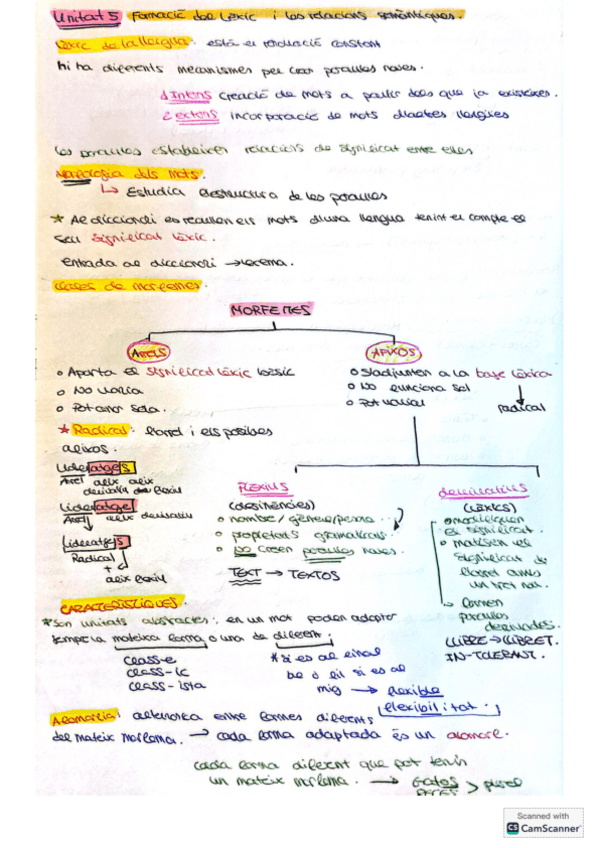 Unitat 5 Formació del lèxic i les relacions semàntiques.
Lèxic de la llengua: està en renovació constant
hi ha diferents mecanismes per crear paraules noves.
1 Intens creació de mots a partir dels que ja existeixen.
2 extens incorporació de mots d'altres llengües
Les paraules estableixen relacions de significat entre elles
Morfologia dels mots.
↳ Estudia l'estructura de les paraules
* Al diccionari es recullen els mots d'una llengua tenint en compte el
seu significat lèxic.
Entrada al diccionari → lexema.
Classes de morfemes.
MORFEMES
ARRELS
AFIXOS
o Aporta el significat lèxic bàsic
o No varia
o Pot anar sola.
o S'adjunten a la base lèxica
o No funciona sol
o Pot variar
radical
* Radical: l'arrel i els possibles
afixos.
Lideratges
Arrel afix afix
derivatiu flexiu
Lideratge
Arrel afix derivatiu
Lideratges
Radical
+
afix flexiu
FLEXIUS
(desinències)
o nombre/gènere/persona
o propietats gramaticals
o NO creen paraules noves.
TEXT → TEXTOS
derivatius
(lèxics)
o modifiquen
el significat.
o matisen el
significat de
l'arrel amb
un tret nou.
↳ formen
paraules
derivades.
LLIBRE → LLIBRET.
IN-TOLERANT.
CARACTERÍSTIQUES.
* Són unitats abstractes: en un mot poden adoptar
sempre la mateixa forma o una de diferent.
Class-e
Class-ic
Class-ista
* si és al final
be o bil si és al
mig → flexible
flexibilitat.
Al·lomorfia: alternança entre formes diferents
del mateix morfema. → cada forma adaptada és un al·lomorf.
cada forma diferent que pot tenir
un mateix morfema. → Gatos > plural
Scanned with
CS CamScanner